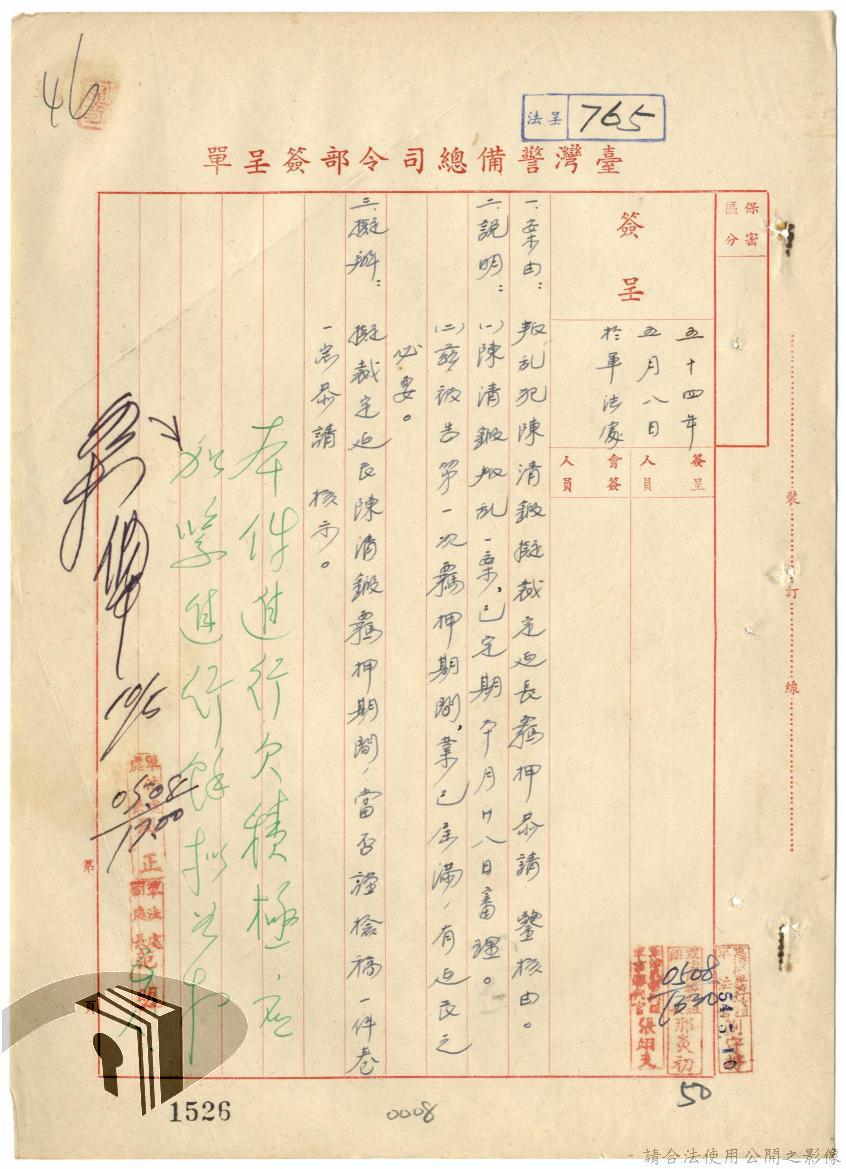 46
法呈 765
臺灣警備總司令部簽呈單
保密區分
簽呈
五十四年
五月八日
於軍法處
簽呈人員
會簽人員
一、案由：叛乱犯陳清鍛擬裁定延長羈押恭請 鑒核由。
二、說明：㈠陳清鍛叛乱一案，已定期本月廿八日審理。
㈡茲被告第一次羈押期間，業已屆滿，有延長之
必要。
三、擬辦：擬裁定延長陳清鍛羈押期間，當否謹檢稿一件卷
一宗恭請 核示。
本件進行欠積極，应
加緊進行餘擬
10/5
0508
1700
第
頁
裝
訂
線
0508
1530
54.5.10
50
1526
0008
請合法使用公開之影像